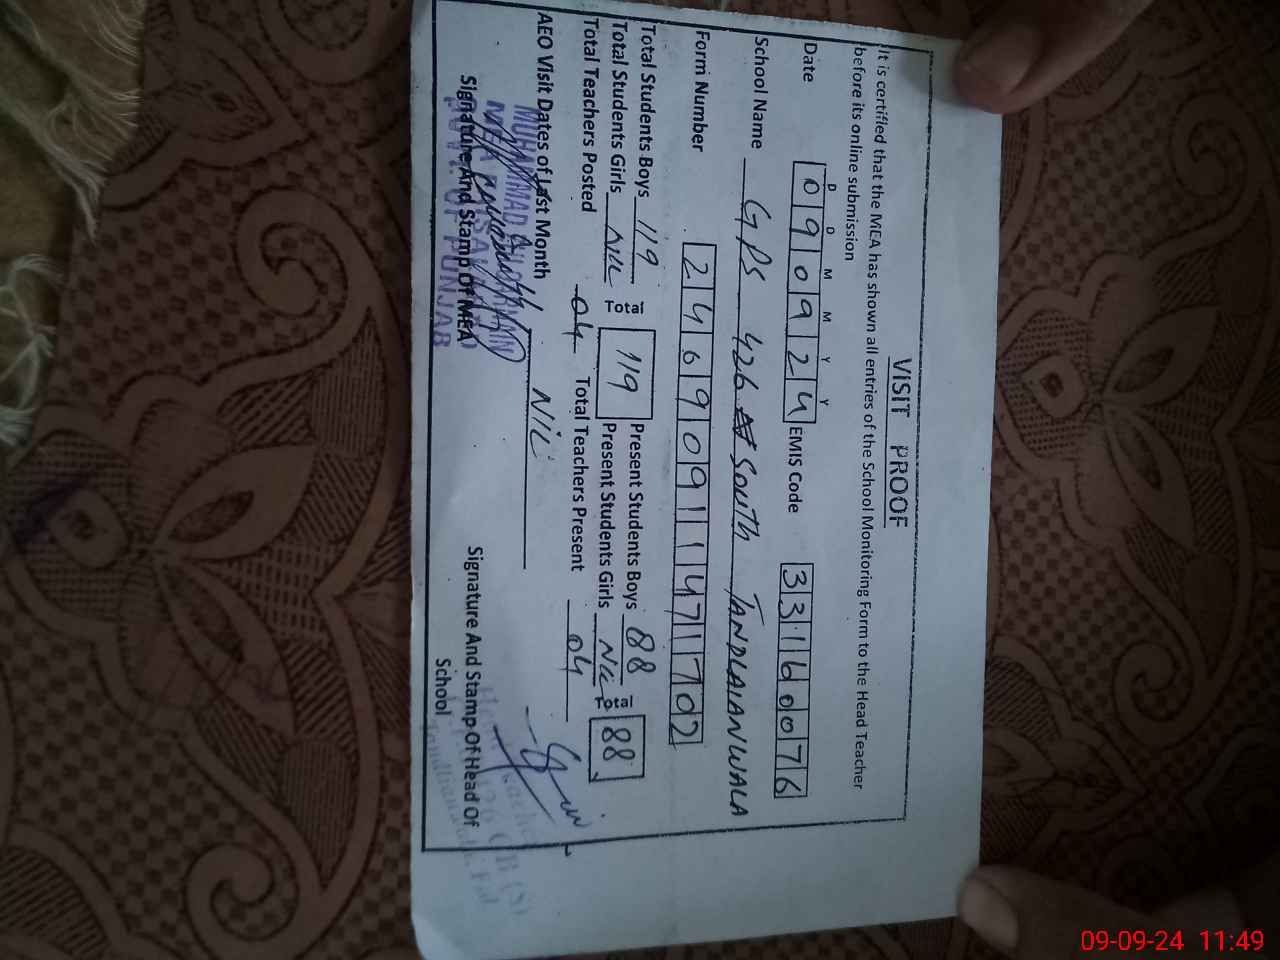 VISIT PROOF
It is certified that the MEA has shown all entries of the School Monitoring Form to the Head Teacher
before its online submission
D D M M Y Y
Date 090924 EMIS Code 33160076
School Name GPS 426 SOUTH TANDLAIANWALA
Form Number 24690911471702
Total Students Boys 119 Total 119 Present Students Boys 88 Total 88
Total Students Girls NIL Present Students Girls NIL
Total Teachers Posted 04 Total Teachers Present 04
AEO Visit Dates of Last Month NIL
MUHAMMAD
MEA
PUNJAB
Signature And Stamp Of MEA
Signature And Stamp Of Head Of
School
09-09-24 11:49